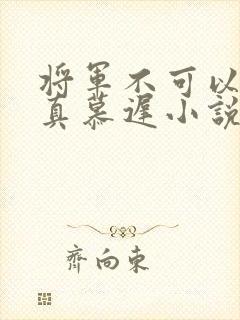 將軍不可以
真慕遲小說
齊向東